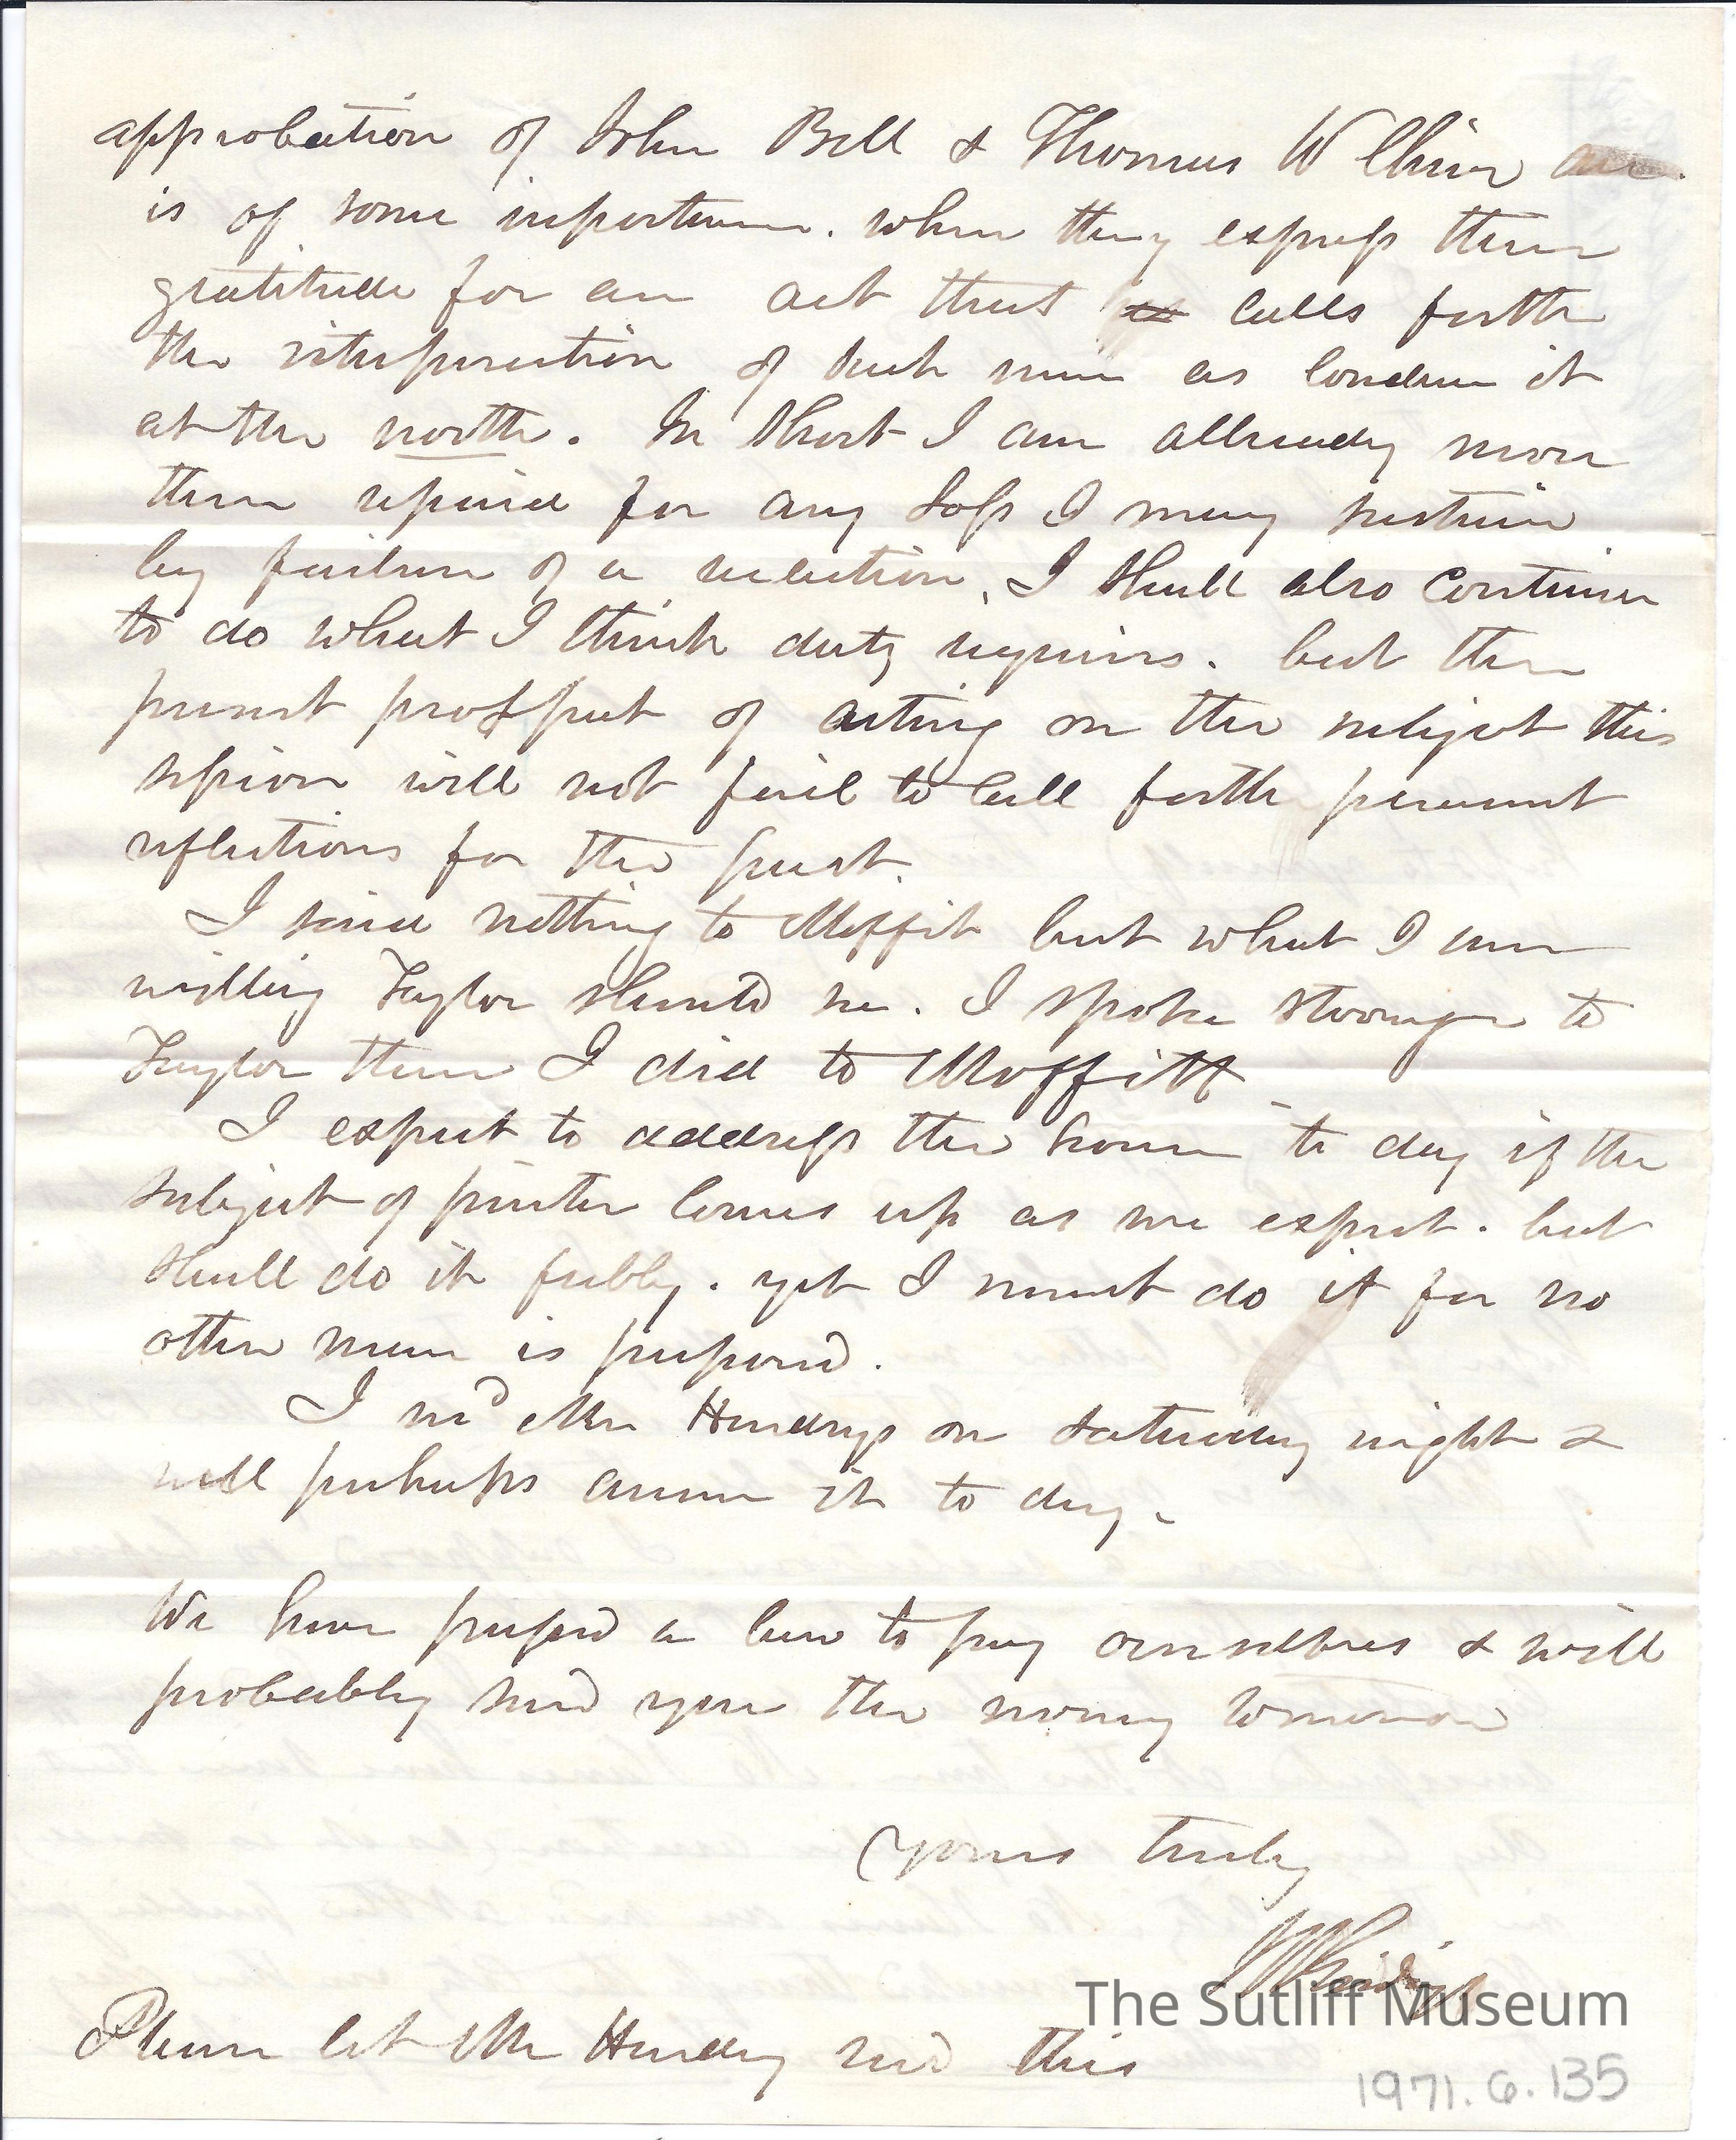 approbation of John Bell & Thomas W
is of some importance. when they express their
gratitude for an act that calls forth
the interposition of such men as condemn it
at the north. In short I am allready more
than repaid for any loss I may sustain
by failure of a reelection, I shall also continue
to do what I think duty requires. but the
present prospect of acting on the subject this
session will not fail to call forth pleasant
reflections for the past.
I said nothing to Moffit but what I am
willing Taylor should see. I spoke stronger to
Taylor than I did to Moffitt
I expect to address the house to day if the
subject of printer comes up as we expect. but
shall do it feebly. yet I must do it for no
other man is prepared.
I recd Mr Hendrys on saturday night &
will perhaps answer it to day.
We have prepared a law to pay ourselves & will
probably send you the money tomorrow
Yours truly
J R Giddings
Please let Mr Hendry read this
The Sutliff Museum
1971.6.135